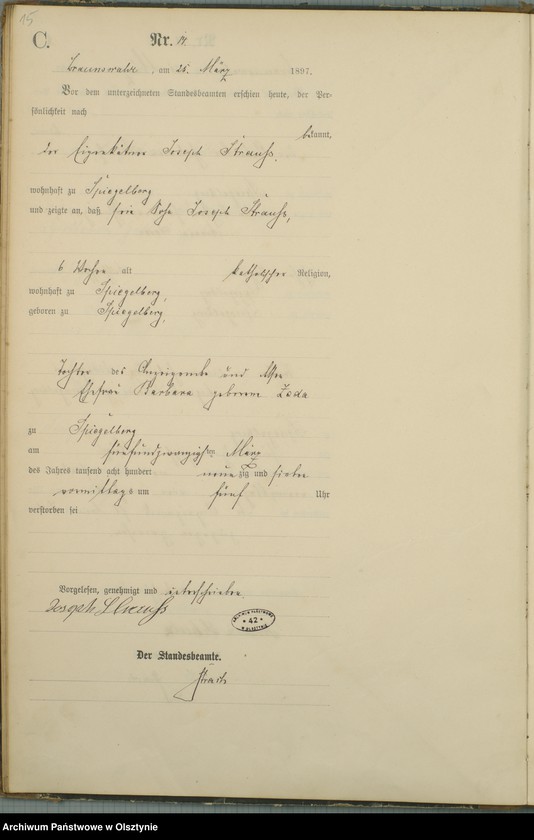 15
C.
Nr. 14.
Braunswalde, am 25. März 1897.
Vor dem unterzeichneten Standesbeamten erschien heute, der Per-
sönlichkeit nach
bekannt,
der Eigenkätner Joseph Strauß,
wohnhaft zu Spiegelberg
und zeigte an, daß sein Sohn Joseph Strauß,
6 Wochen alt katholischer Religion,
wohnhaft zu Spiegelberg,
geboren zu Spiegelberg,
Tochter des Anzeigende und
Ehefrau Barbara geborene
zu Spiegelberg
am fünfundzwanzigsten März
des Jahres tausend acht hundert neunzig und sieben
vormittags um fünf Uhr
verstorben sei
Vorgelesen, genehmigt und unterschrieben
Joseph Strauß
ARCHIWUM PAŃSTWOWE
* 42 *
W OLSZTYNIE
Der Standesbeamte.
Archiwum Państwowe w Olsztynie